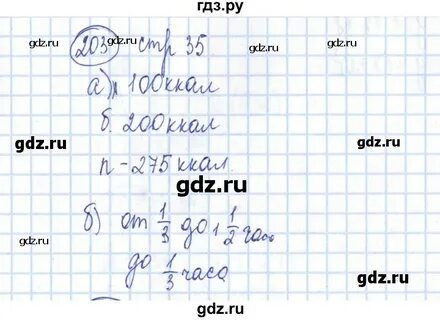 гдз.ру
203 стр 35
а) 100ккал
б. 200ккал
п - 275 ккал.
б) от 1/3 до 1 1/2 часа
до 1/3 часа
gdz.ru gdz.ru
gdz.ru gdz.ru
gdz.ru gdz.ru
gdz.ru gdz.ru
gdz.ru gdz.ru